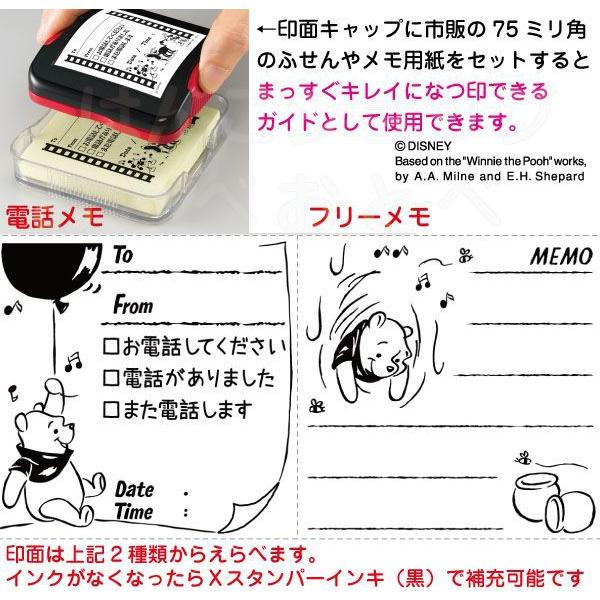 ←印面キャップに市販の75ミリ角
のふせんやメモ用紙をセットすると
まっすぐキレイになつ印できる
ガイドとして使用できます。
©DISNEY
Based on the "Winnie the Pooh" works,
by A.A. Milne and E.H. Shepard
To
From
□お電話してください
□電話がありました
□また電話します
電話メモ
フリーメモ
To
From
□お電話してください
□電話がありました
□また電話します
Date :
Time :
MEMO
印面は上記2種類からえらべます。
インクがなくなったらXスタンパーインキ（黒）で補充可能です